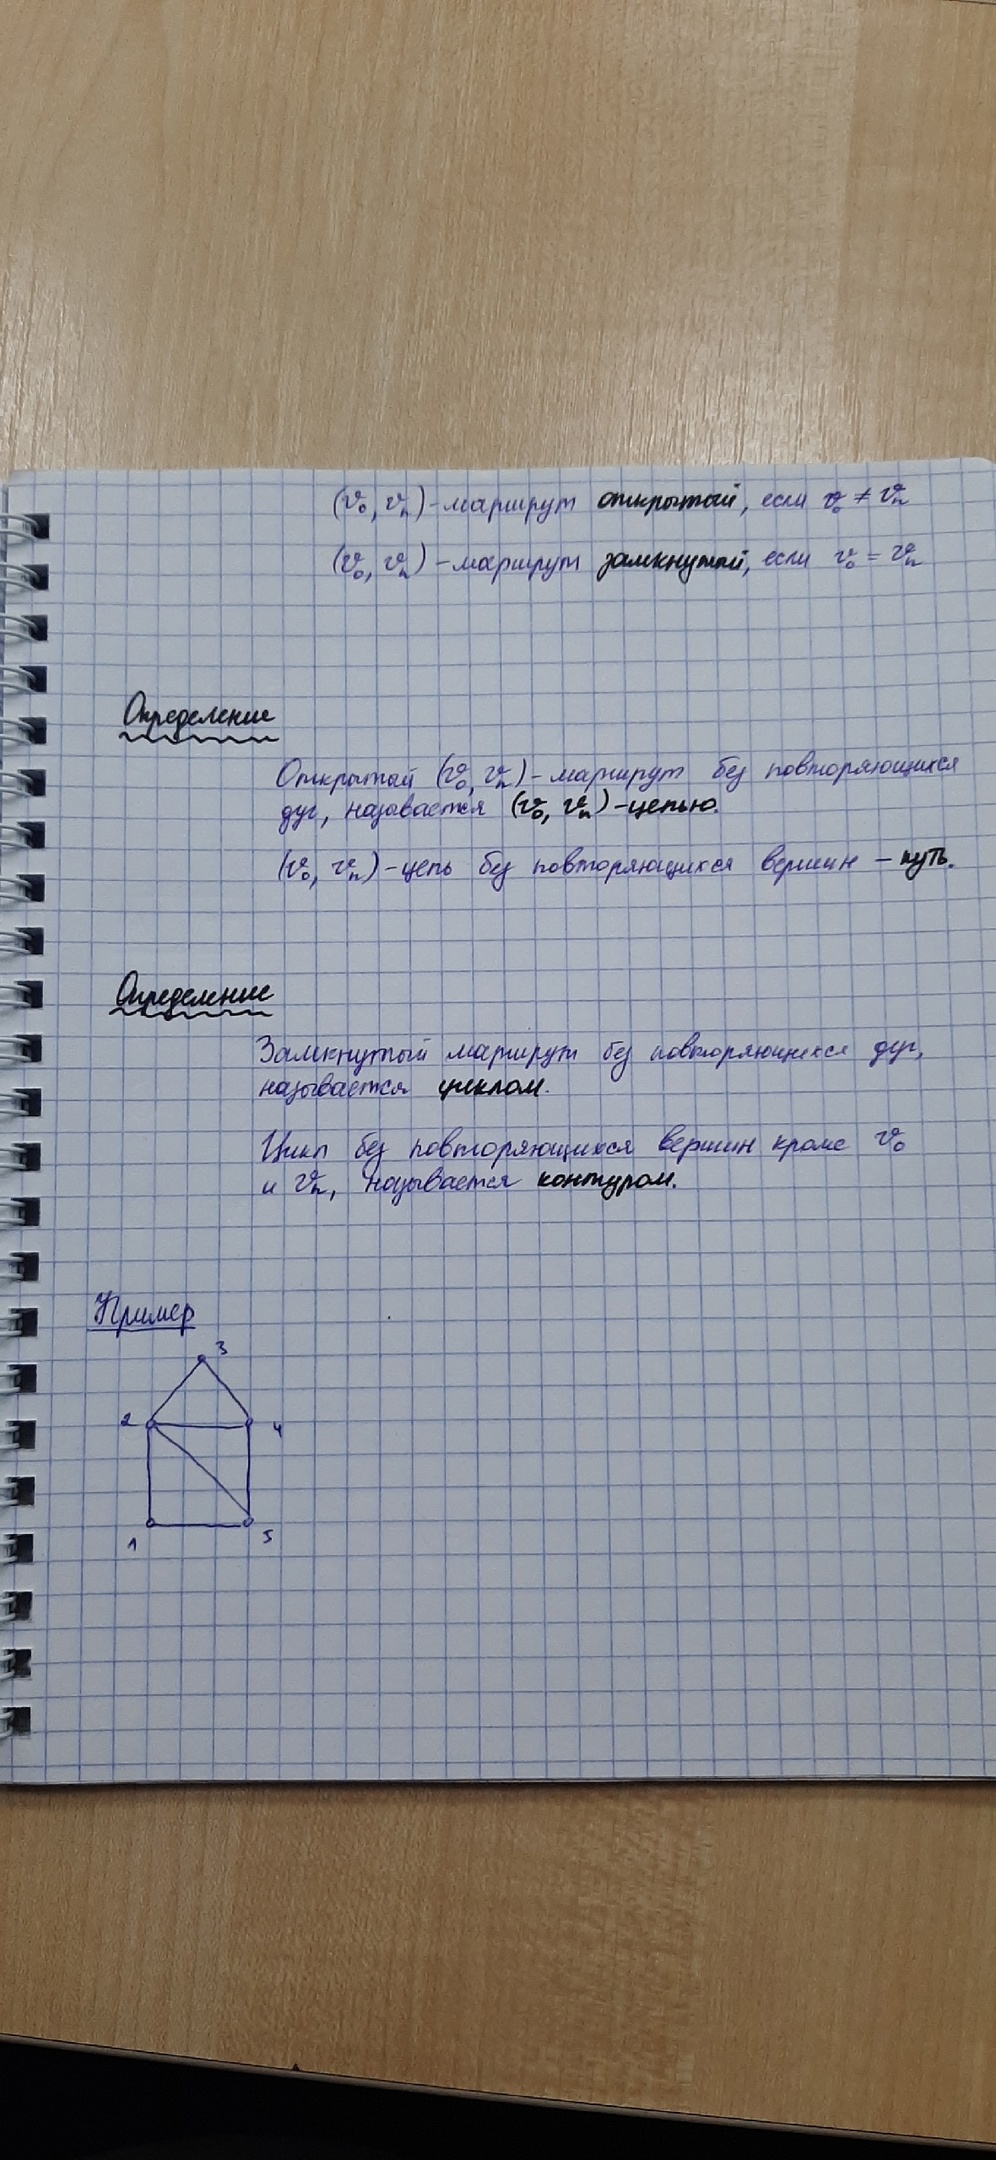 (v₀, vₙ)-маршрут открытый, если v₀ ≠ vₙ
(v₀, vₙ)-маршрут замкнутый, если v₀ = vₙ
Определение
Открытый (v₀, vₙ)-маршрут без повторяющихся
дуг, называется (v₀, vₙ)-цепью.
(v₀, vₙ)-цепь без повторяющихся вершин – путь.
Определение
Замкнутый маршрут без повторяющихся дуг,
называется циклом.
Цикл без повторяющихся вершин кроме v₀
и vₙ, называется контуром.
Пример
3
2 4
1 5